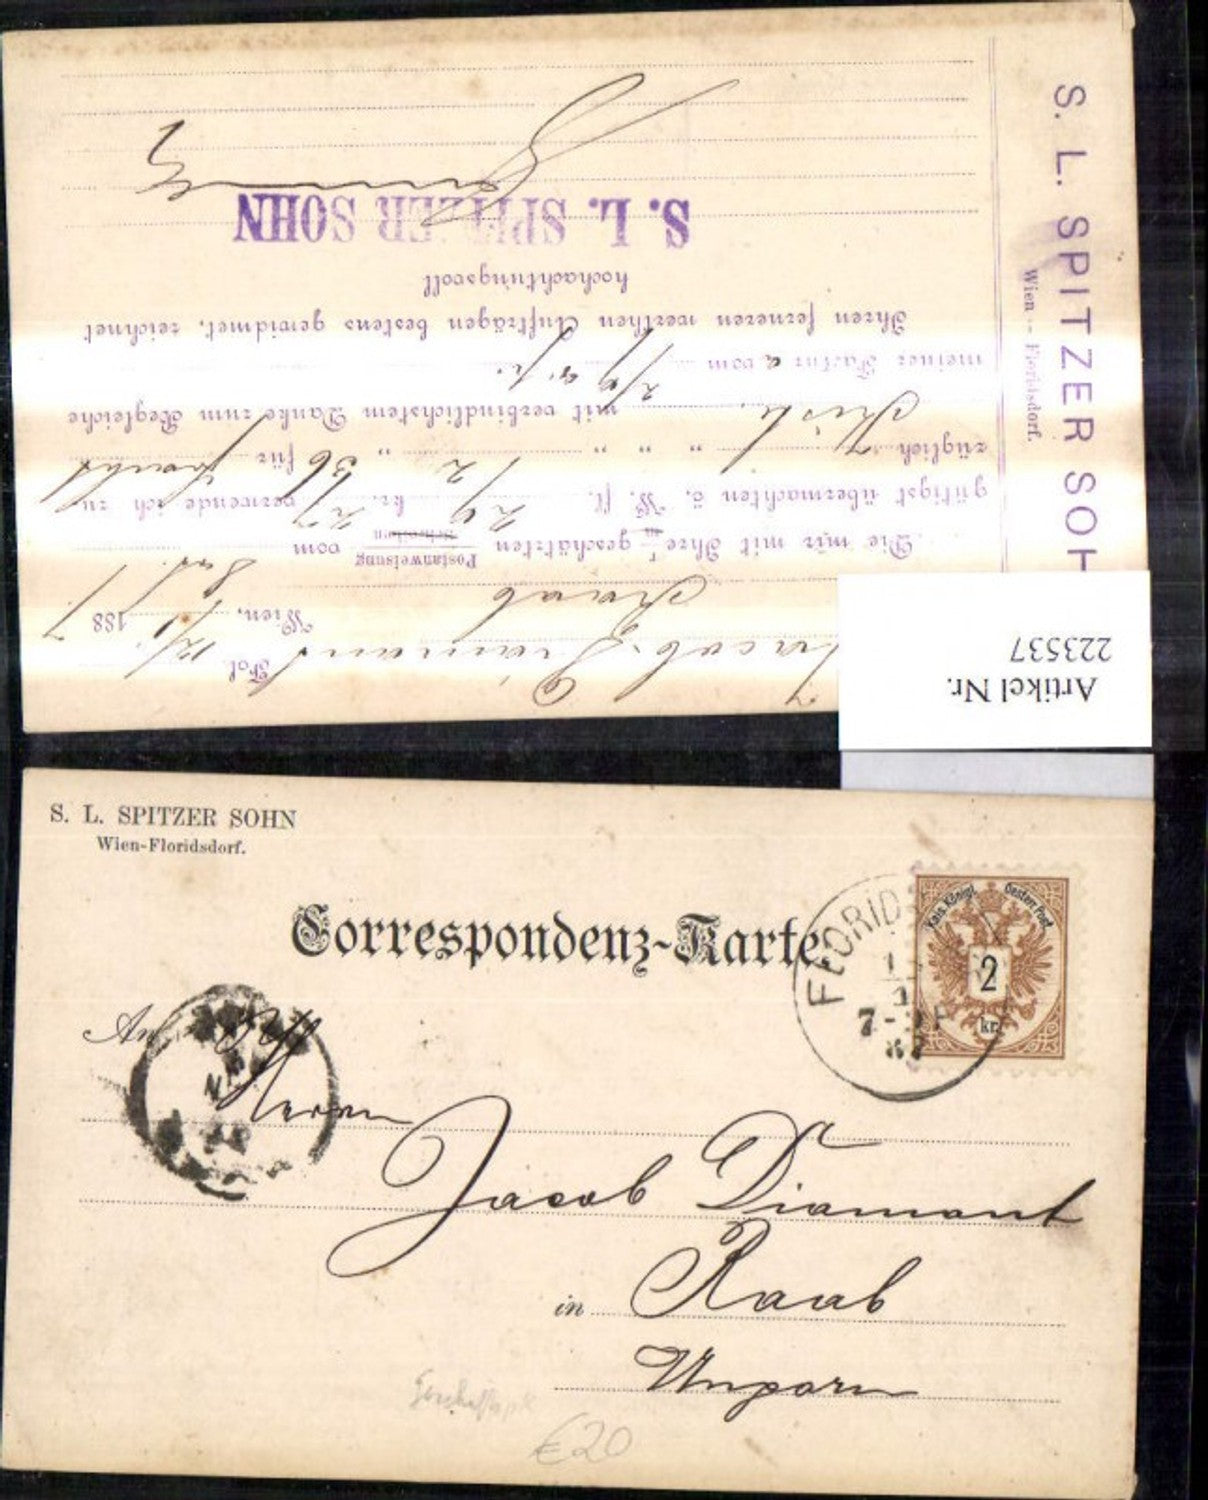 S. L. SPITZER SOH
Wien - Floridsdorf.
Jacob Diamant
Fol.
Raab
Wien, 188 7
Die mir mit Ihrer geschätzten Postanweisung Schreiben vom
gütigst übermachten ö. W. fl. 29 kr. 27 verwende ich zu
züglich " " " 12 " 36 für
mit verbindlichstem Danke zum Begleiche
meiner Factur a vom
Ihren ferneren werthen Aufträgen bestens gewidmet, zeichnet
hochachtungsvoll
S. L. SPITZER SOHN
Artikel Nr.
223537
S. L. SPITZER SOHN
Wien-Floridsdorf.
Correspondenz-Karte.
Kais. Königl. Oesterr. Post.
2
kr.
FLORIDS
An
Herrn
Jacob Diamant
in Raab
Ungarn
€20